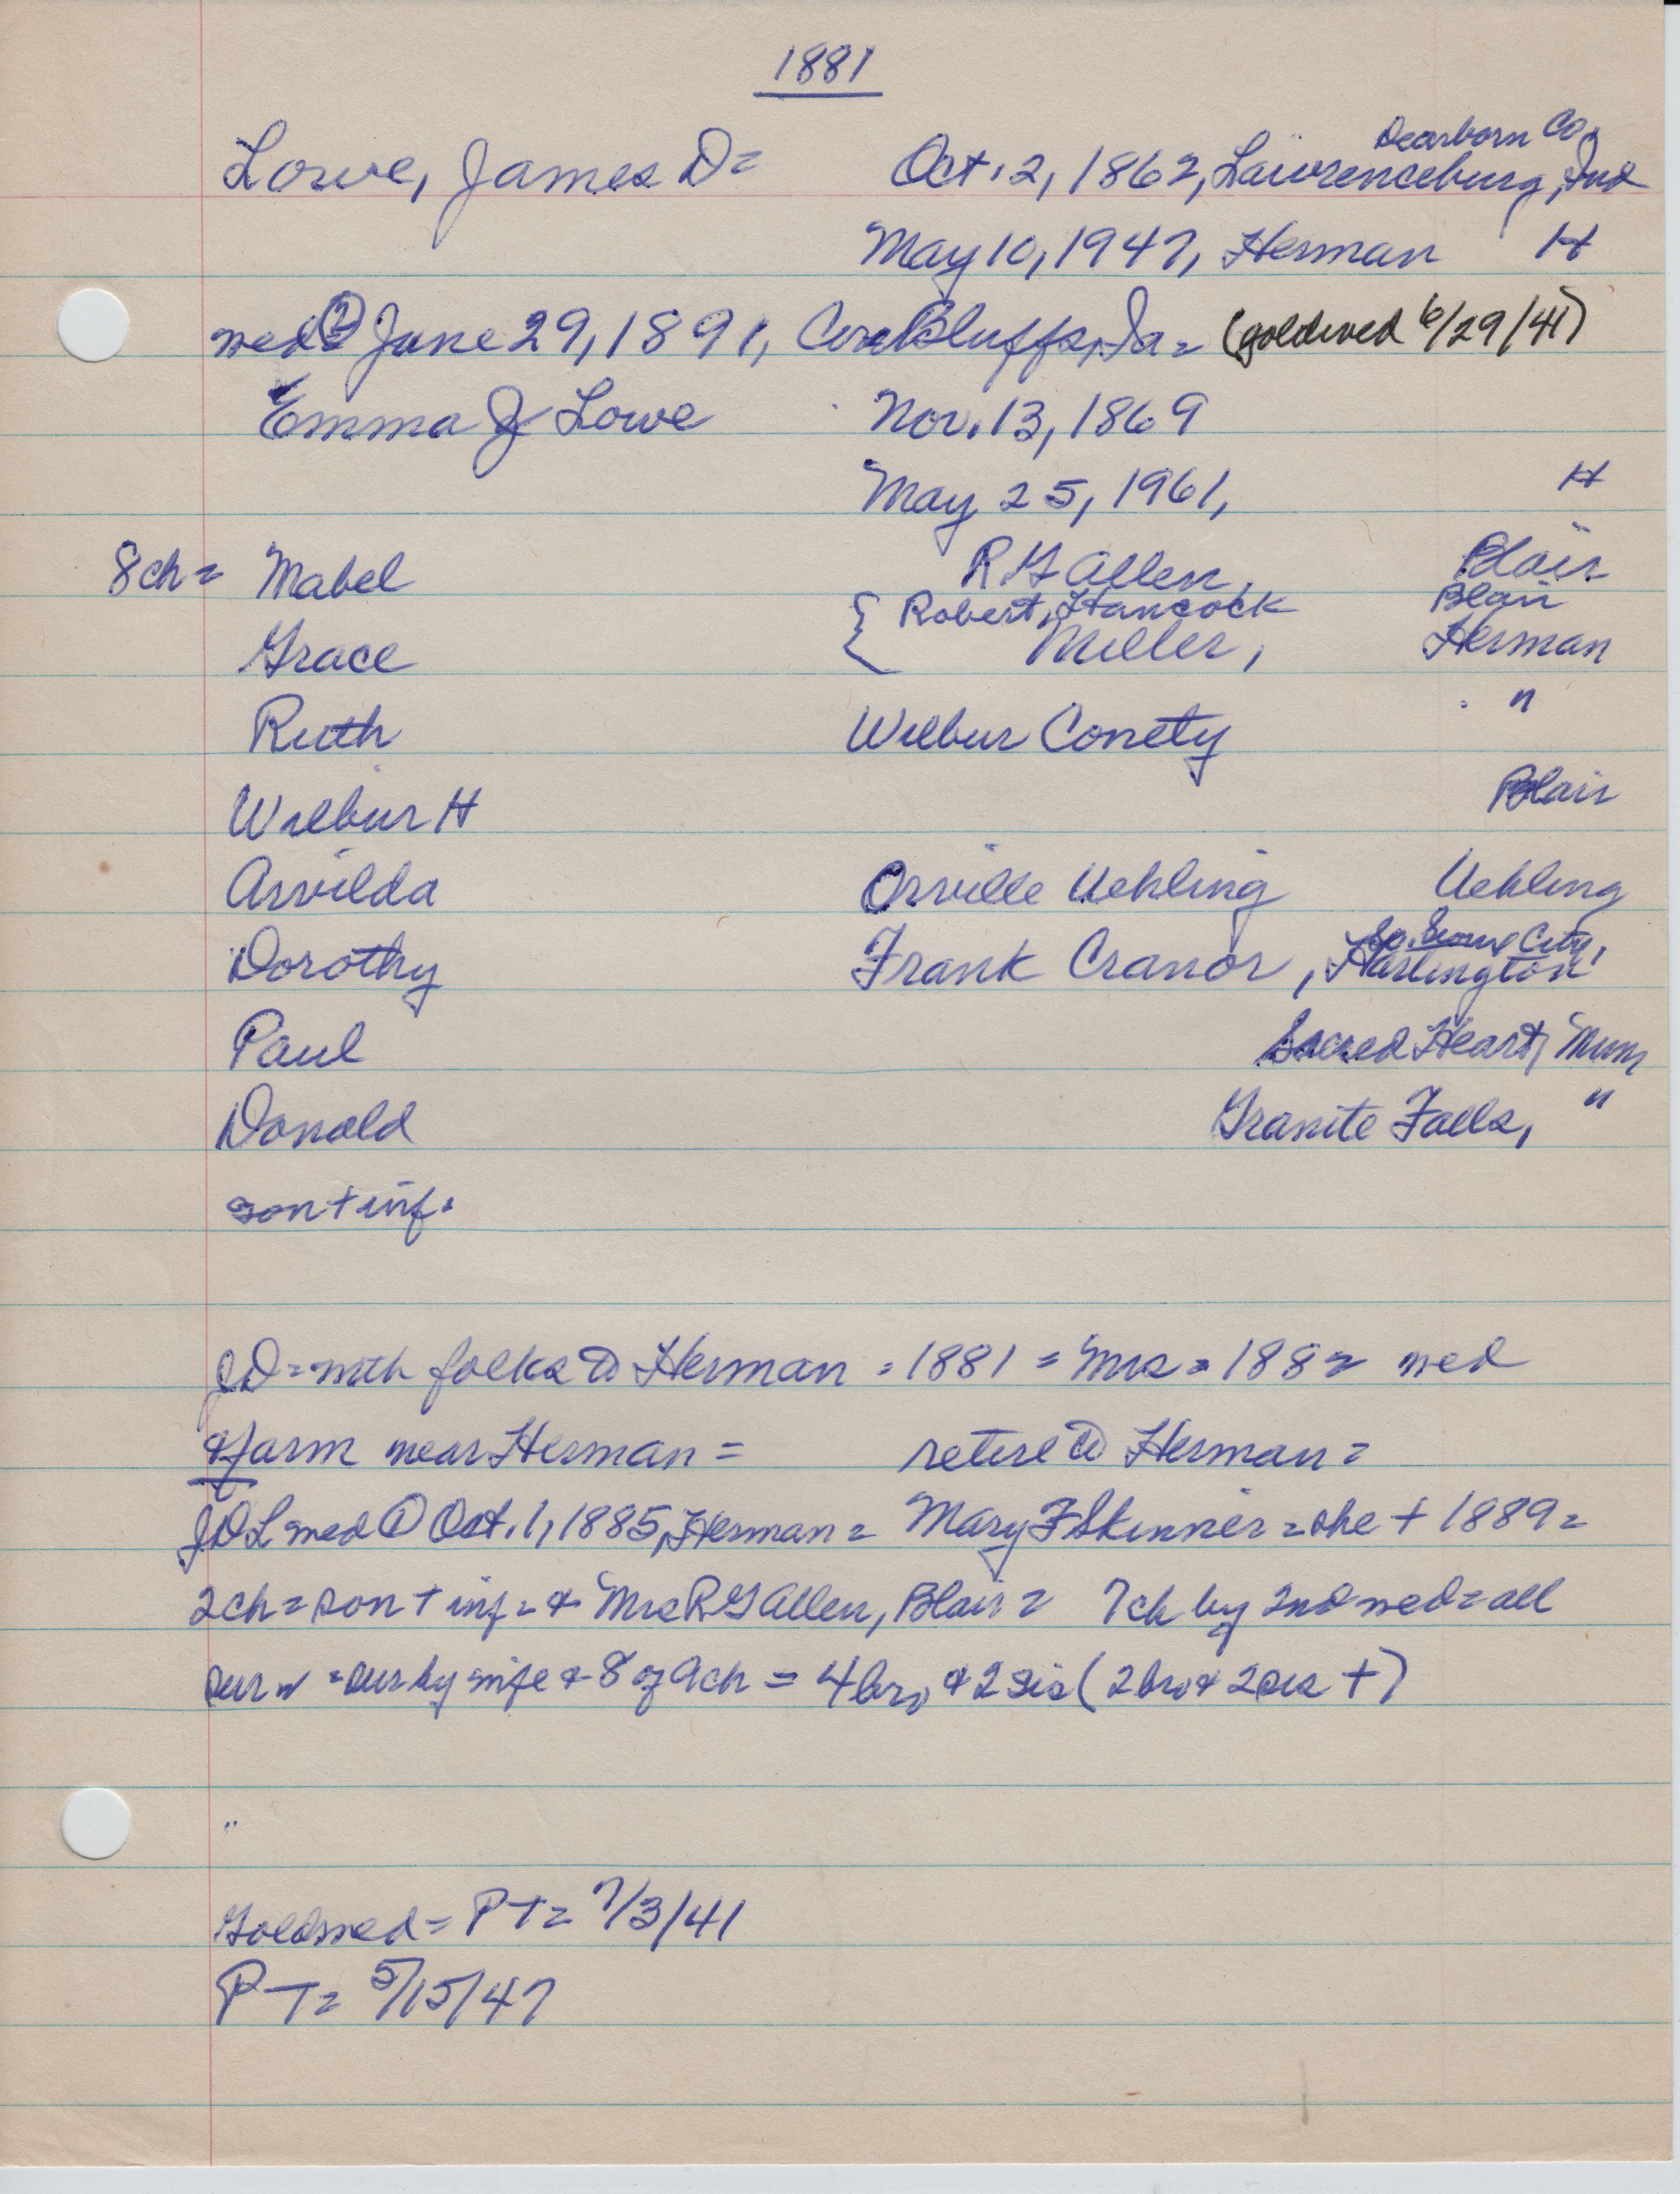 1881
Dearborn Co,
Lowe, James D = Oct. 2, 1862, Lawrenceburg, Ind
May 10, 1947, Herman H
wed ② June 29, 1891, Bluffs, Ia = (goldwed 6/29/41)
Emma J Lowe Nov. 13, 1869
May 25, 1961, H
8 ch = Mabel R G Allen, Blair
{ Robert Hancock Blair
Grace Miller, Herman
Ruth Wilbur Conety "
Wilbur H Blair
Arvilda Orville Uehling Uehling
So. Sioux City,
Dorothy Frank Cranor,
Paul Sacred Heart, Minn
Donald Granite Falls, "
son + inf.
JD = with folks to Herman = 1881 = Mrs = 1882 wed
& farm near Herman = retire to Herman =
JDL wed ① Oct. 1, 1885, Herman = Mary F Skinner = she + 1889 =
2 ch = son + inf = & Mrs R G Allen, Blair = 7 ch by 2nd wed = all
sur = sur by wife & 8 of 9 ch = 4 bro & 2 sis (2 bro & 2 sis +)
Goldwed = PT = 7/3/41
PT = 5/15/47